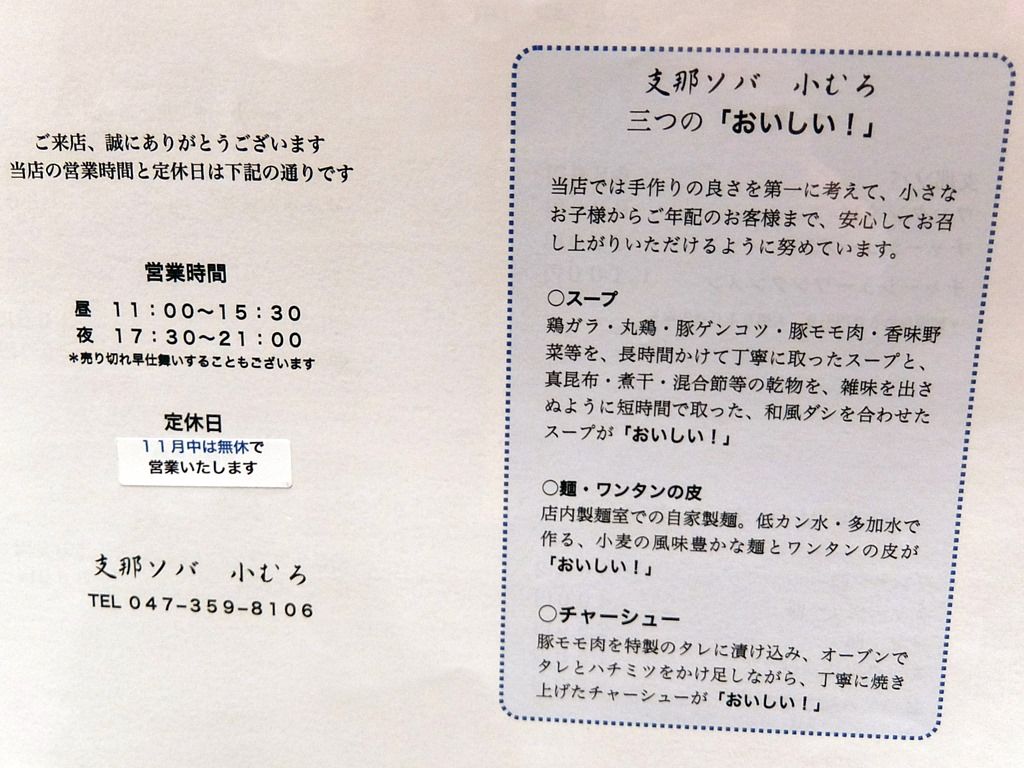 ご来店、誠にありがとうございます
当店の営業時間と定休日は下記の通りです
営業時間
昼 11:00〜15:30
夜 17:30〜21:00
*売り切れ早仕舞いすることもございます
定休日
11月中は無休で
営業いたします
支那ソバ 小むろ
TEL 047-359-8106
支那ソバ 小むろ
三つの「おいしい!」
当店では手作りの良さを第一に考えて、小さな
お子様からご年配のお客様まで、安心してお召
し上がりいただけるように努めています。
○スープ
鶏ガラ・丸鶏・豚ゲンコツ・豚モモ肉・香味野
菜等を、長時間かけて丁寧に取ったスープと、
真昆布・煮干・混合節等の乾物を、雑味を出さ
ぬように短時間で取った、和風ダシを合わせた
スープが「おいしい!」
○麺・ワンタンの皮
店内製麺室での自家製麺。低カン水・多加水で
作る、小麦の風味豊かな麺とワンタンの皮が
「おいしい!」
○チャーシュー
豚モモ肉を特製のタレに漬け込み、オーブンで
タレとハチミツをかけ足しながら、丁寧に焼き
上げたチャーシューが「おいしい!」